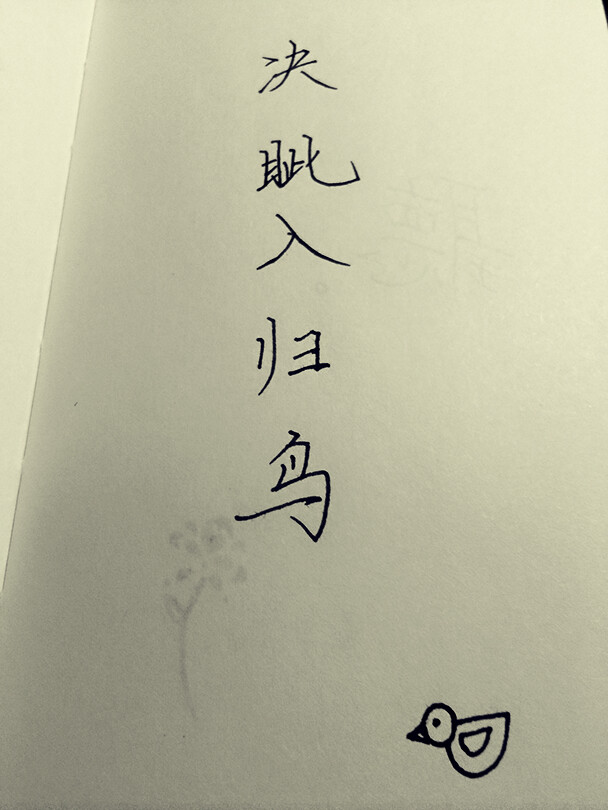 决眦入归鸟